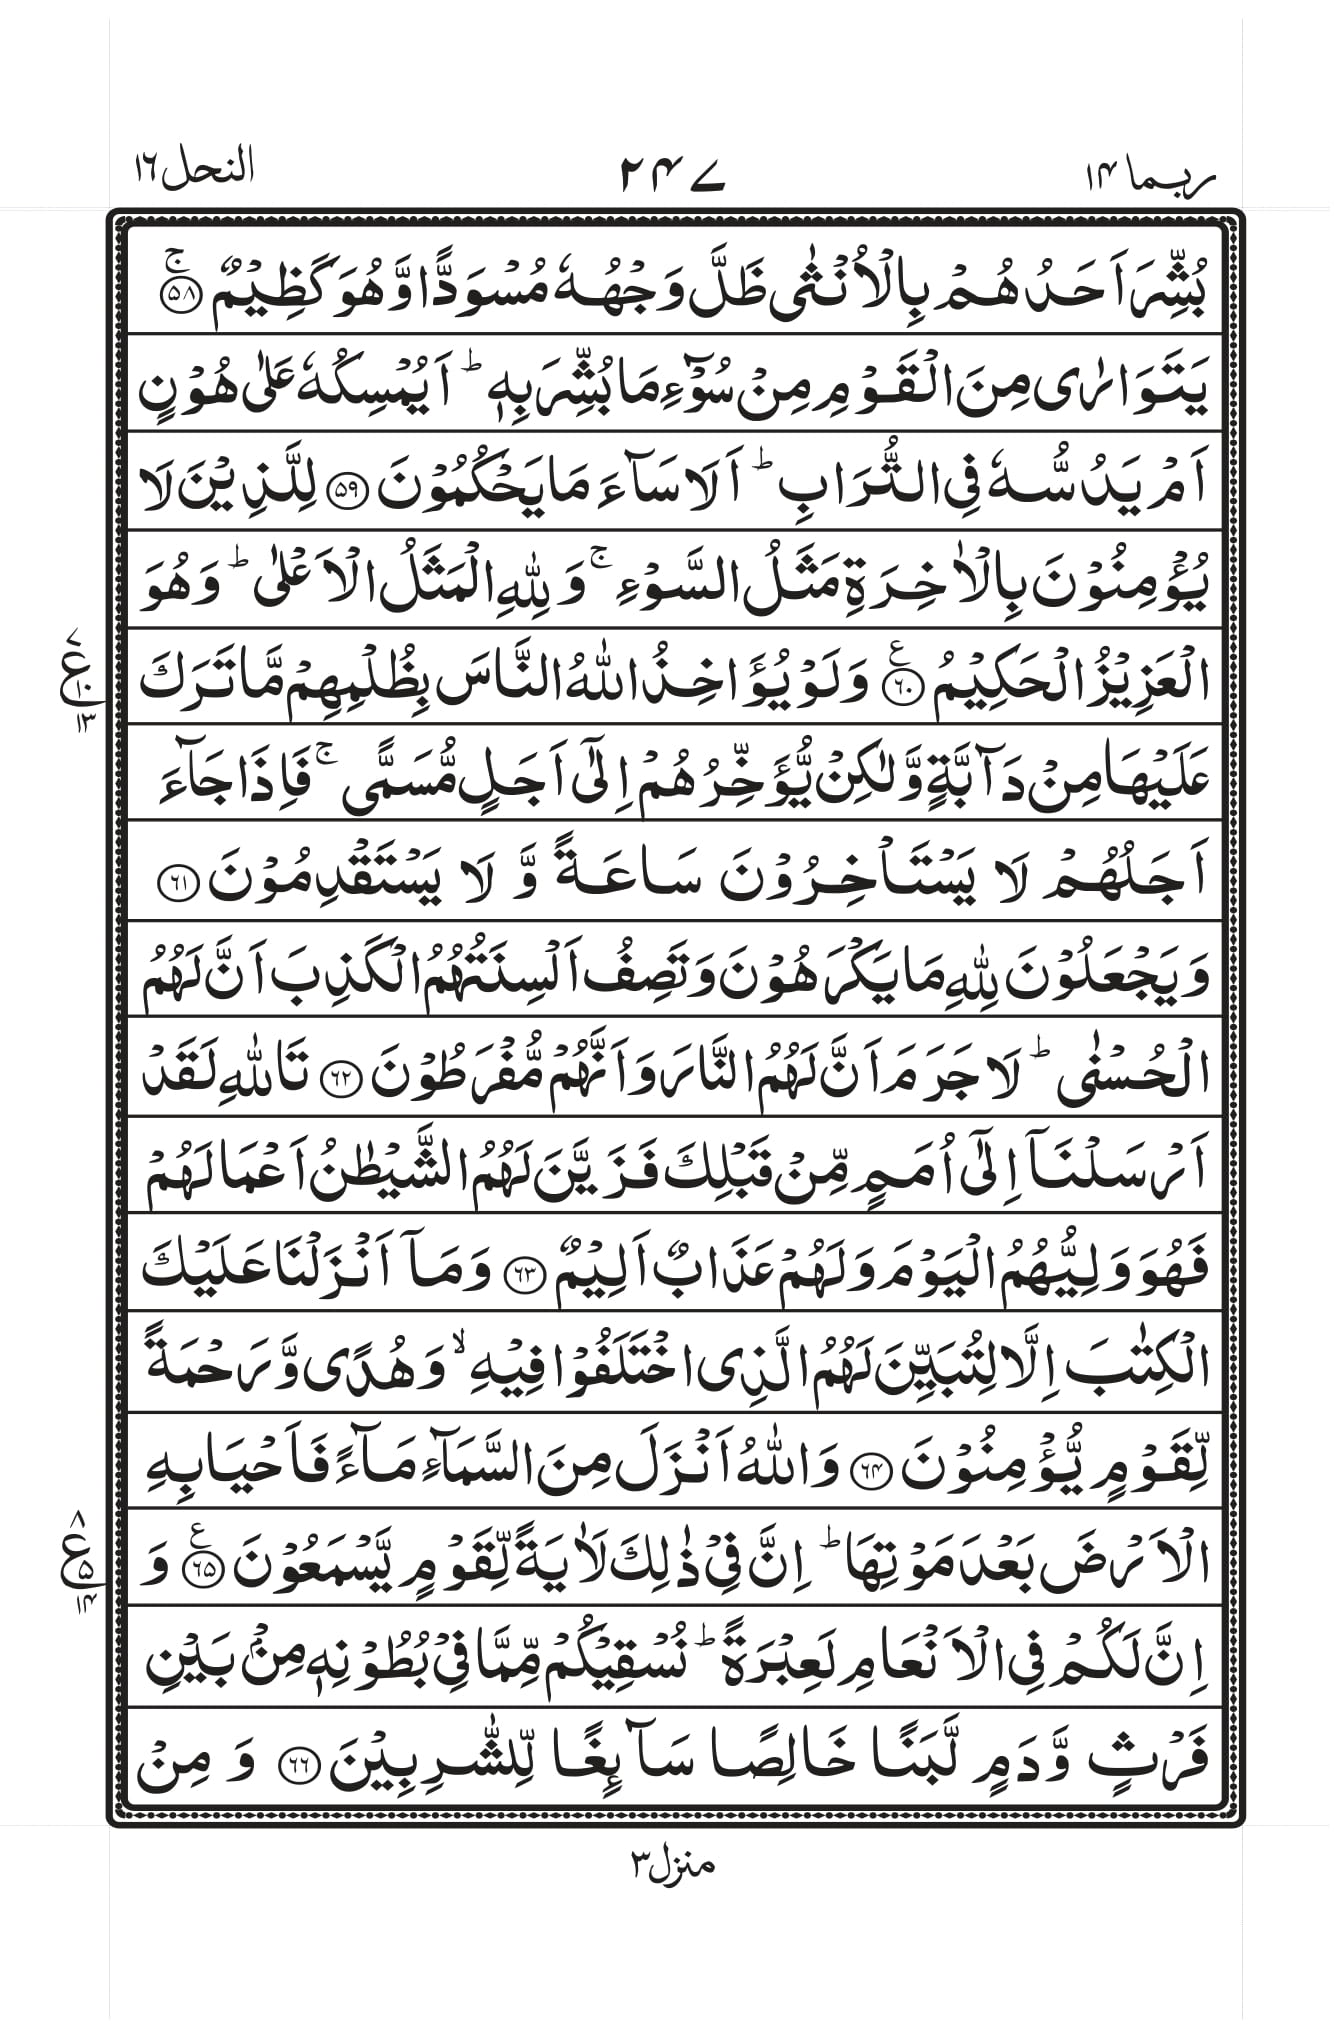 ربما ۱۴
۲۴۷
النحل ۱۶
بُشِّرَ اَحَدُهُمۡ بِالۡاُنۡثٰى ظَلَّ وَجۡهُهٗ مُسۡوَدًّا وَّهُوَ كَظِيۡمٌ ۚ‏ ﴿۵۸﴾
يَتَوَارٰى مِنَ الۡقَوۡمِ مِنۡ سُوۡٓءِ مَا بُشِّرَ بِهٖ ؕ اَيُمۡسِكُهٗ عَلٰى هُوۡنٍ
اَمۡ يَدُسُّهٗ فِى التُّرَابِ ؕ اَلَا سَآءَ مَا يَحۡكُمُوۡنَ ﴿۵۹﴾ لِلَّذِيۡنَ لَا
يُؤۡمِنُوۡنَ بِالۡاٰخِرَةِ مَثَلُ السَّوۡءِ ۚ وَلِلّٰهِ الۡمَثَلُ الۡاَعۡلٰى ؕ وَهُوَ
الۡعَزِيۡزُ الۡحَكِيۡمُ ﴿۶۰﴾ ع وَلَوۡ يُؤَاخِذُ اللّٰهُ النَّاسَ بِظُلۡمِهِمۡ مَّا تَرَكَ
۷ ع ۱۰ ۱۳
عَلَيۡهَا مِنۡ دَآبَّةٍ وَّلٰكِنۡ يُّؤَخِّرُهُمۡ اِلٰٓى اَجَلٍ مُّسَمًّى ۚ فَاِذَا جَآءَ
اَجَلُهُمۡ لَا يَسۡتَاۡخِرُوۡنَ سَاعَةً وَّ لَا يَسۡتَقۡدِمُوۡنَ ﴿۶۱﴾
وَيَجۡعَلُوۡنَ لِلّٰهِ مَا يَكۡرَهُوۡنَ وَتَصِفُ اَلۡسِنَتُهُمُ الۡكَذِبَ اَنَّ لَهُمُ
الۡحُسۡنٰى ؕ لَا جَرَمَ اَنَّ لَهُمُ النَّارَ وَاَنَّهُمۡ مُّفۡرَطُوۡنَ ﴿۶۲﴾ تَاللّٰهِ لَقَدۡ
اَرۡسَلۡنَاۤ اِلٰٓى اُمَمٍ مِّنۡ قَبۡلِكَ فَزَيَّنَ لَهُمُ الشَّيۡطٰنُ اَعۡمَالَهُمۡ
فَهُوَ وَلِيُّهُمُ الۡيَوۡمَ وَلَهُمۡ عَذَابٌ اَلِيۡمٌ ﴿۶۳﴾ وَمَاۤ اَنۡزَلۡنَا عَلَيۡكَ
الۡكِتٰبَ اِلَّا لِتُبَيِّنَ لَهُمُ الَّذِى اخۡتَلَفُوۡا فِيۡهِ ۙ وَهُدًى وَّرَحۡمَةً
لِّقَوۡمٍ يُّؤۡمِنُوۡنَ ﴿۶۴﴾ وَاللّٰهُ اَنۡزَلَ مِنَ السَّمَآءِ مَآءً فَاَحۡيَا بِهِ
الۡاَرۡضَ بَعۡدَ مَوۡتِهَا ؕ اِنَّ فِىۡ ذٰلِكَ لَاٰيَةً لِّقَوۡمٍ يَّسۡمَعُوۡنَ ﴿۶۵﴾ ع وَ
۸ ع ۵ ۱۴
اِنَّ لَكُمۡ فِى الۡاَنۡعَامِ لَعِبۡرَةً ؕ نُسۡقِيۡكُمۡ مِّمَّا فِىۡ بُطُوۡنِهٖ مِنۡۢ بَيۡنِ
فَرۡثٍ وَّدَمٍ لَّبَنًا خَالِصًا سَآٮِٕغًا لِّلشّٰرِبِيۡنَ ﴿۶۶﴾ وَ مِنۡ
منزل ۳